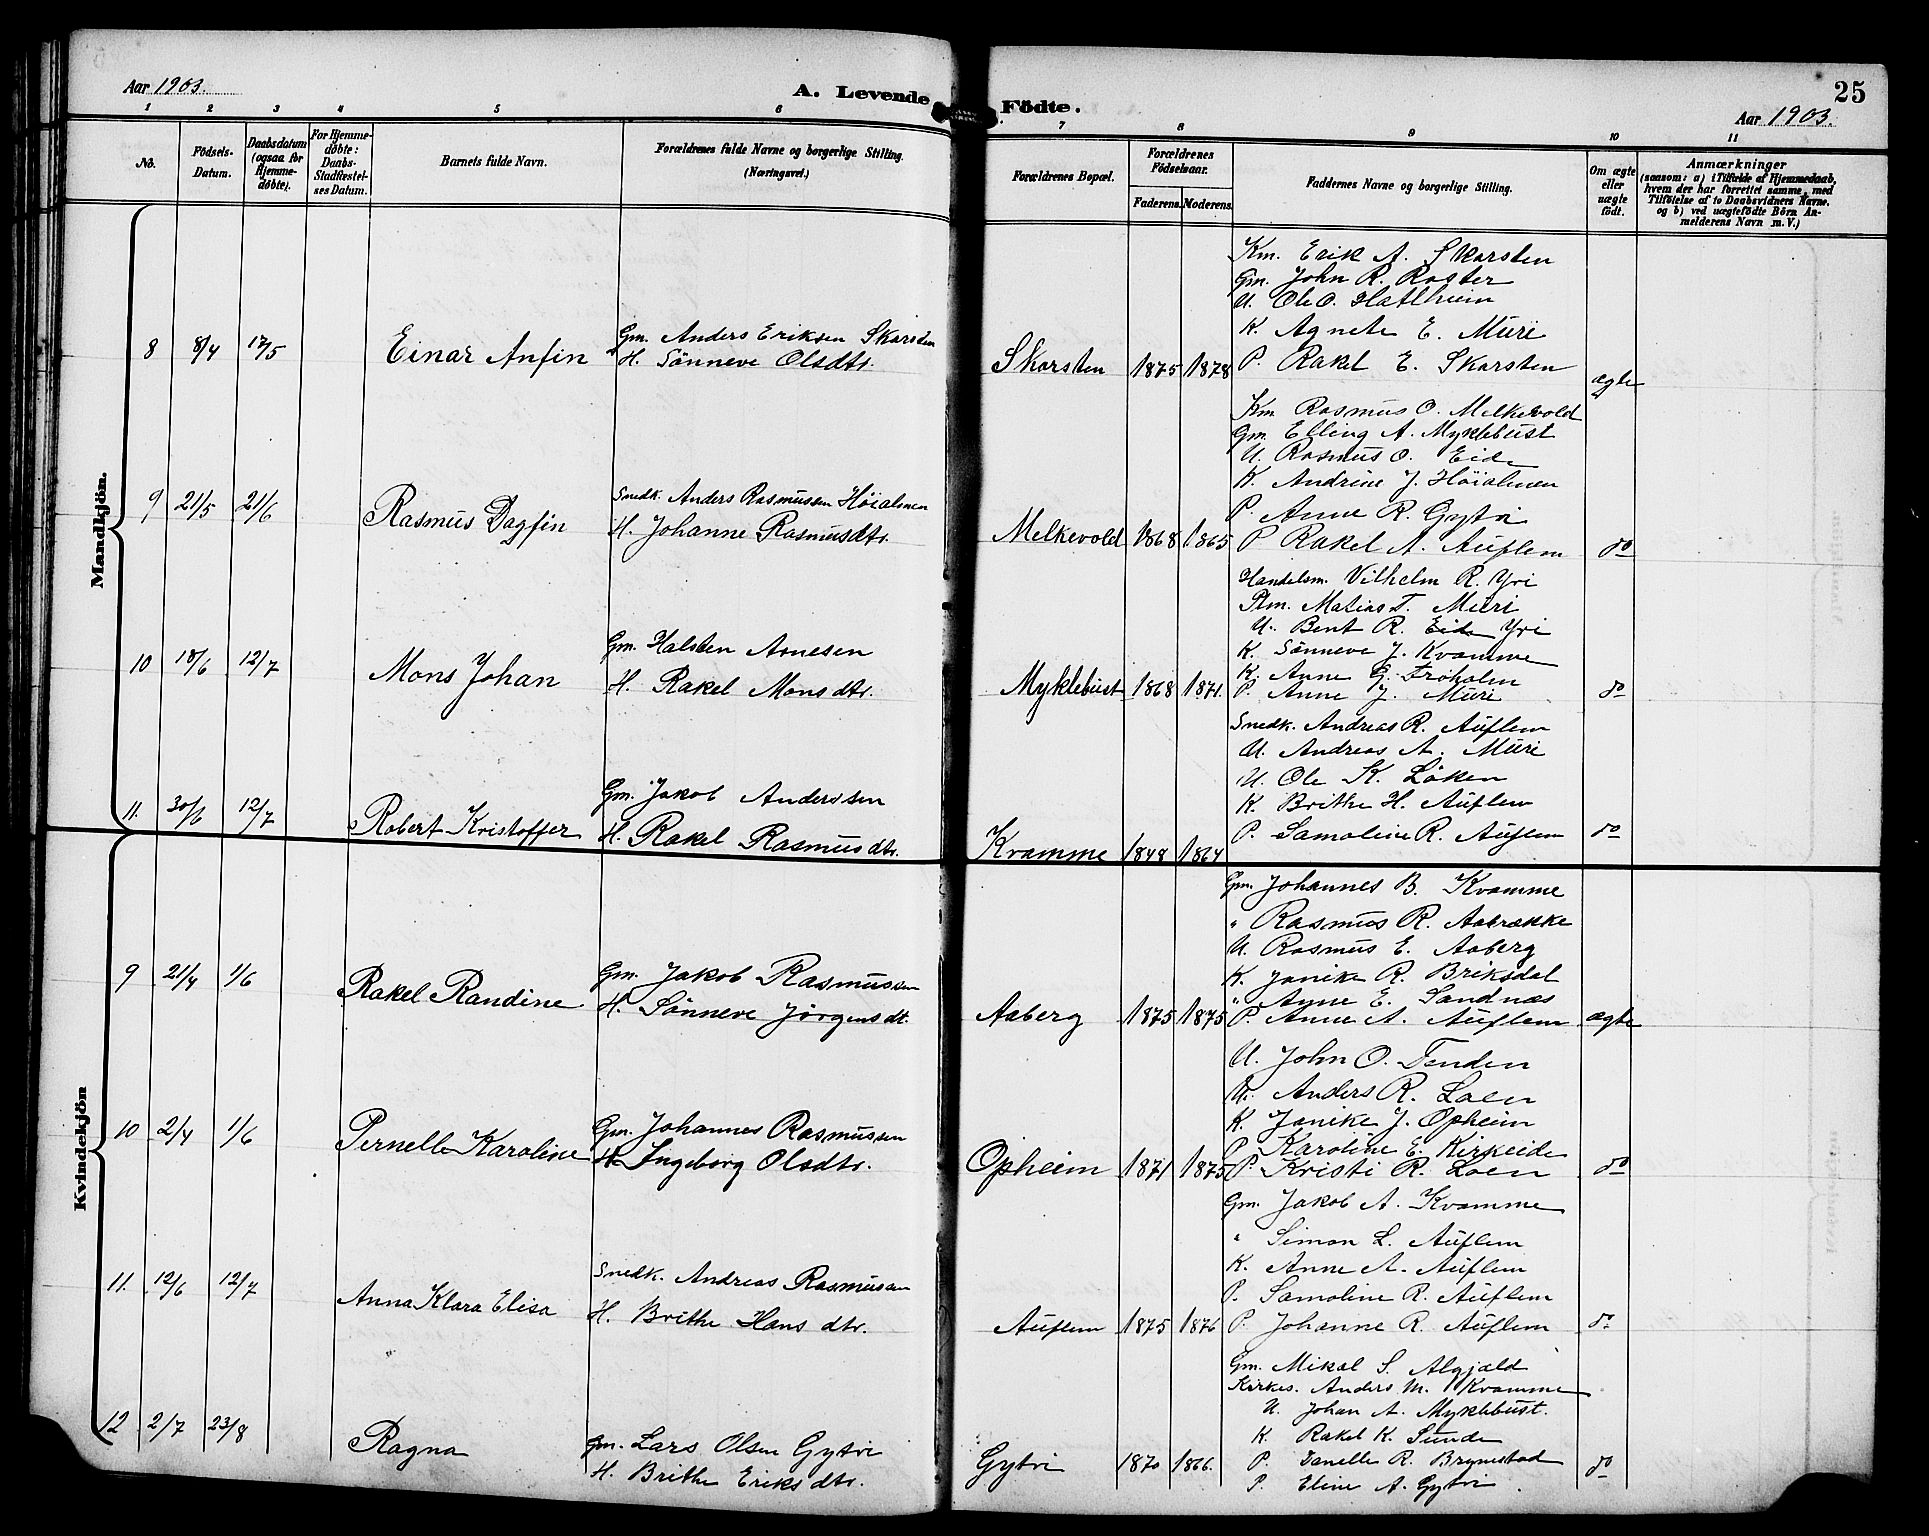 Aar 1903.
A. Levende
1 2 3 4 5 6
No.
Födsels-Datum.
Daabsdatum (ogsaa for Hjemme-døbte).
For Hjemme-döbte: Daabs-Stadfæstel-ses Datum.
Barnets fulde Navn.
Forældrenes fulde Navne og borgerlige Stilling.
(Næringsvei.)
Mandkjön.
8 8/4 17/5 Einar Anfin
Gm. Anders Eriksen Skarsten
H. Sönneve Olsdtr.
9 21/5 21/6 Rasmus Dagfin
Snedk. Anders Rasmussen Höialmen
H. Johanne Rasmusdtr.
10 18/6 12/7 Mons Johan
Gm. Halsten Arnesen
H. Rakel Monsdtr.
11. 30/6 12/7 Robert Kristoffer
Gm. Jakob Anderssen
H. Rakel Rasmusdtr.
Kvindekjön
9 21/4 1/6 Rakel Randine
Gm. Jakob Rasmussen
H. Sönneve Jørgensdt.
10 2/4 1/6 Pernelle Karoline
Gm. Johannes Rasmussen
H. Ingeborg Olsdtr.
11. 12/6 12/7 Anna Klara Elisa
Snedk. Andreas Rasmussen
H. Brithe Hansdtr.
12 2/7 23/8 Ragna
Gm. Lars Olsen Gytri
H. Brithe Eriksdtr.
Födte.
25
Aar 1903.
7 8 9 10 11
Forældrenes Bopæl.
Forældrenes Födselsaar.
Faderens. Moderens.
Faddernes Navne og borgerlige Stilling.
Om ægte eller uægte födt.
Anmærkninger
(saasom: a) i Tilfælde af Hjemmedaab, hvem der har forrettet samme, med Tilföielse af to Daabsvidners Navne. og b) ved uægtefödte Börn An-melderens Navn m. V.)
Km. Erik A. Skarsten
Gm. John R. Raster
U. Ole O. Hatlheim
K. Agnete E. Muri
Skarsten 1875 1878 P. Rakel E. Skarsten ægte
Km. Rasmus O. Melkevold
Gm. Elling A. Myklebust
U. Rasmus O. Eide
K. Andrine J. Höialmen
P. Anne R. Gytri
Melkevold 1868 1865 P Rakel A. Auflem do
Handelsm. Vilhelm R. Yri
Plm. Matias T. Muri
U. Bent R. Eide Yri
K. Sönneve J. Kvamme
K. Anne G. Fröholm
Myklebust 1868 1871. P. Anne J. Muri do
Snedk. Andreas R. Auflem
U. Andreas A. Muri
U. Ole K. Löken
K. Brithe H. Auflem
Kvamme 1848 1864 P. Samoline R. Auflem do
Gm. Johannes B. Kvamme
" Rasmus R. Aabrække
U. Rasmus E. Aaberg
K. Janike R. Briksdal
" Anne E. Sandnæs
Aaberg 1875 1875 P. Anne A. Auflem ægte
U. John O. Tenden
U. Anders R. Loen
K. Janike J. Opheim
P Karoline E. Kirkeide
Opheim 1871 1875 P. Kristi R. Loen do
Gm. Jakob A. Kvamme
" Simon L. Auflem
K. Anne A. Auflem
P. Samoline R. Auflem
Auflem 1875 1876 P. Johanne R. Auflem do
Gm. Mikal S. Algjald
Kirkes. Anders M. Kvamme
U. Johan A. Myklebust.
K. Rakel K. Sunde
Gytri 1870 1866. P. Danelle R. Brynestad do
P. Eline A. Gytri